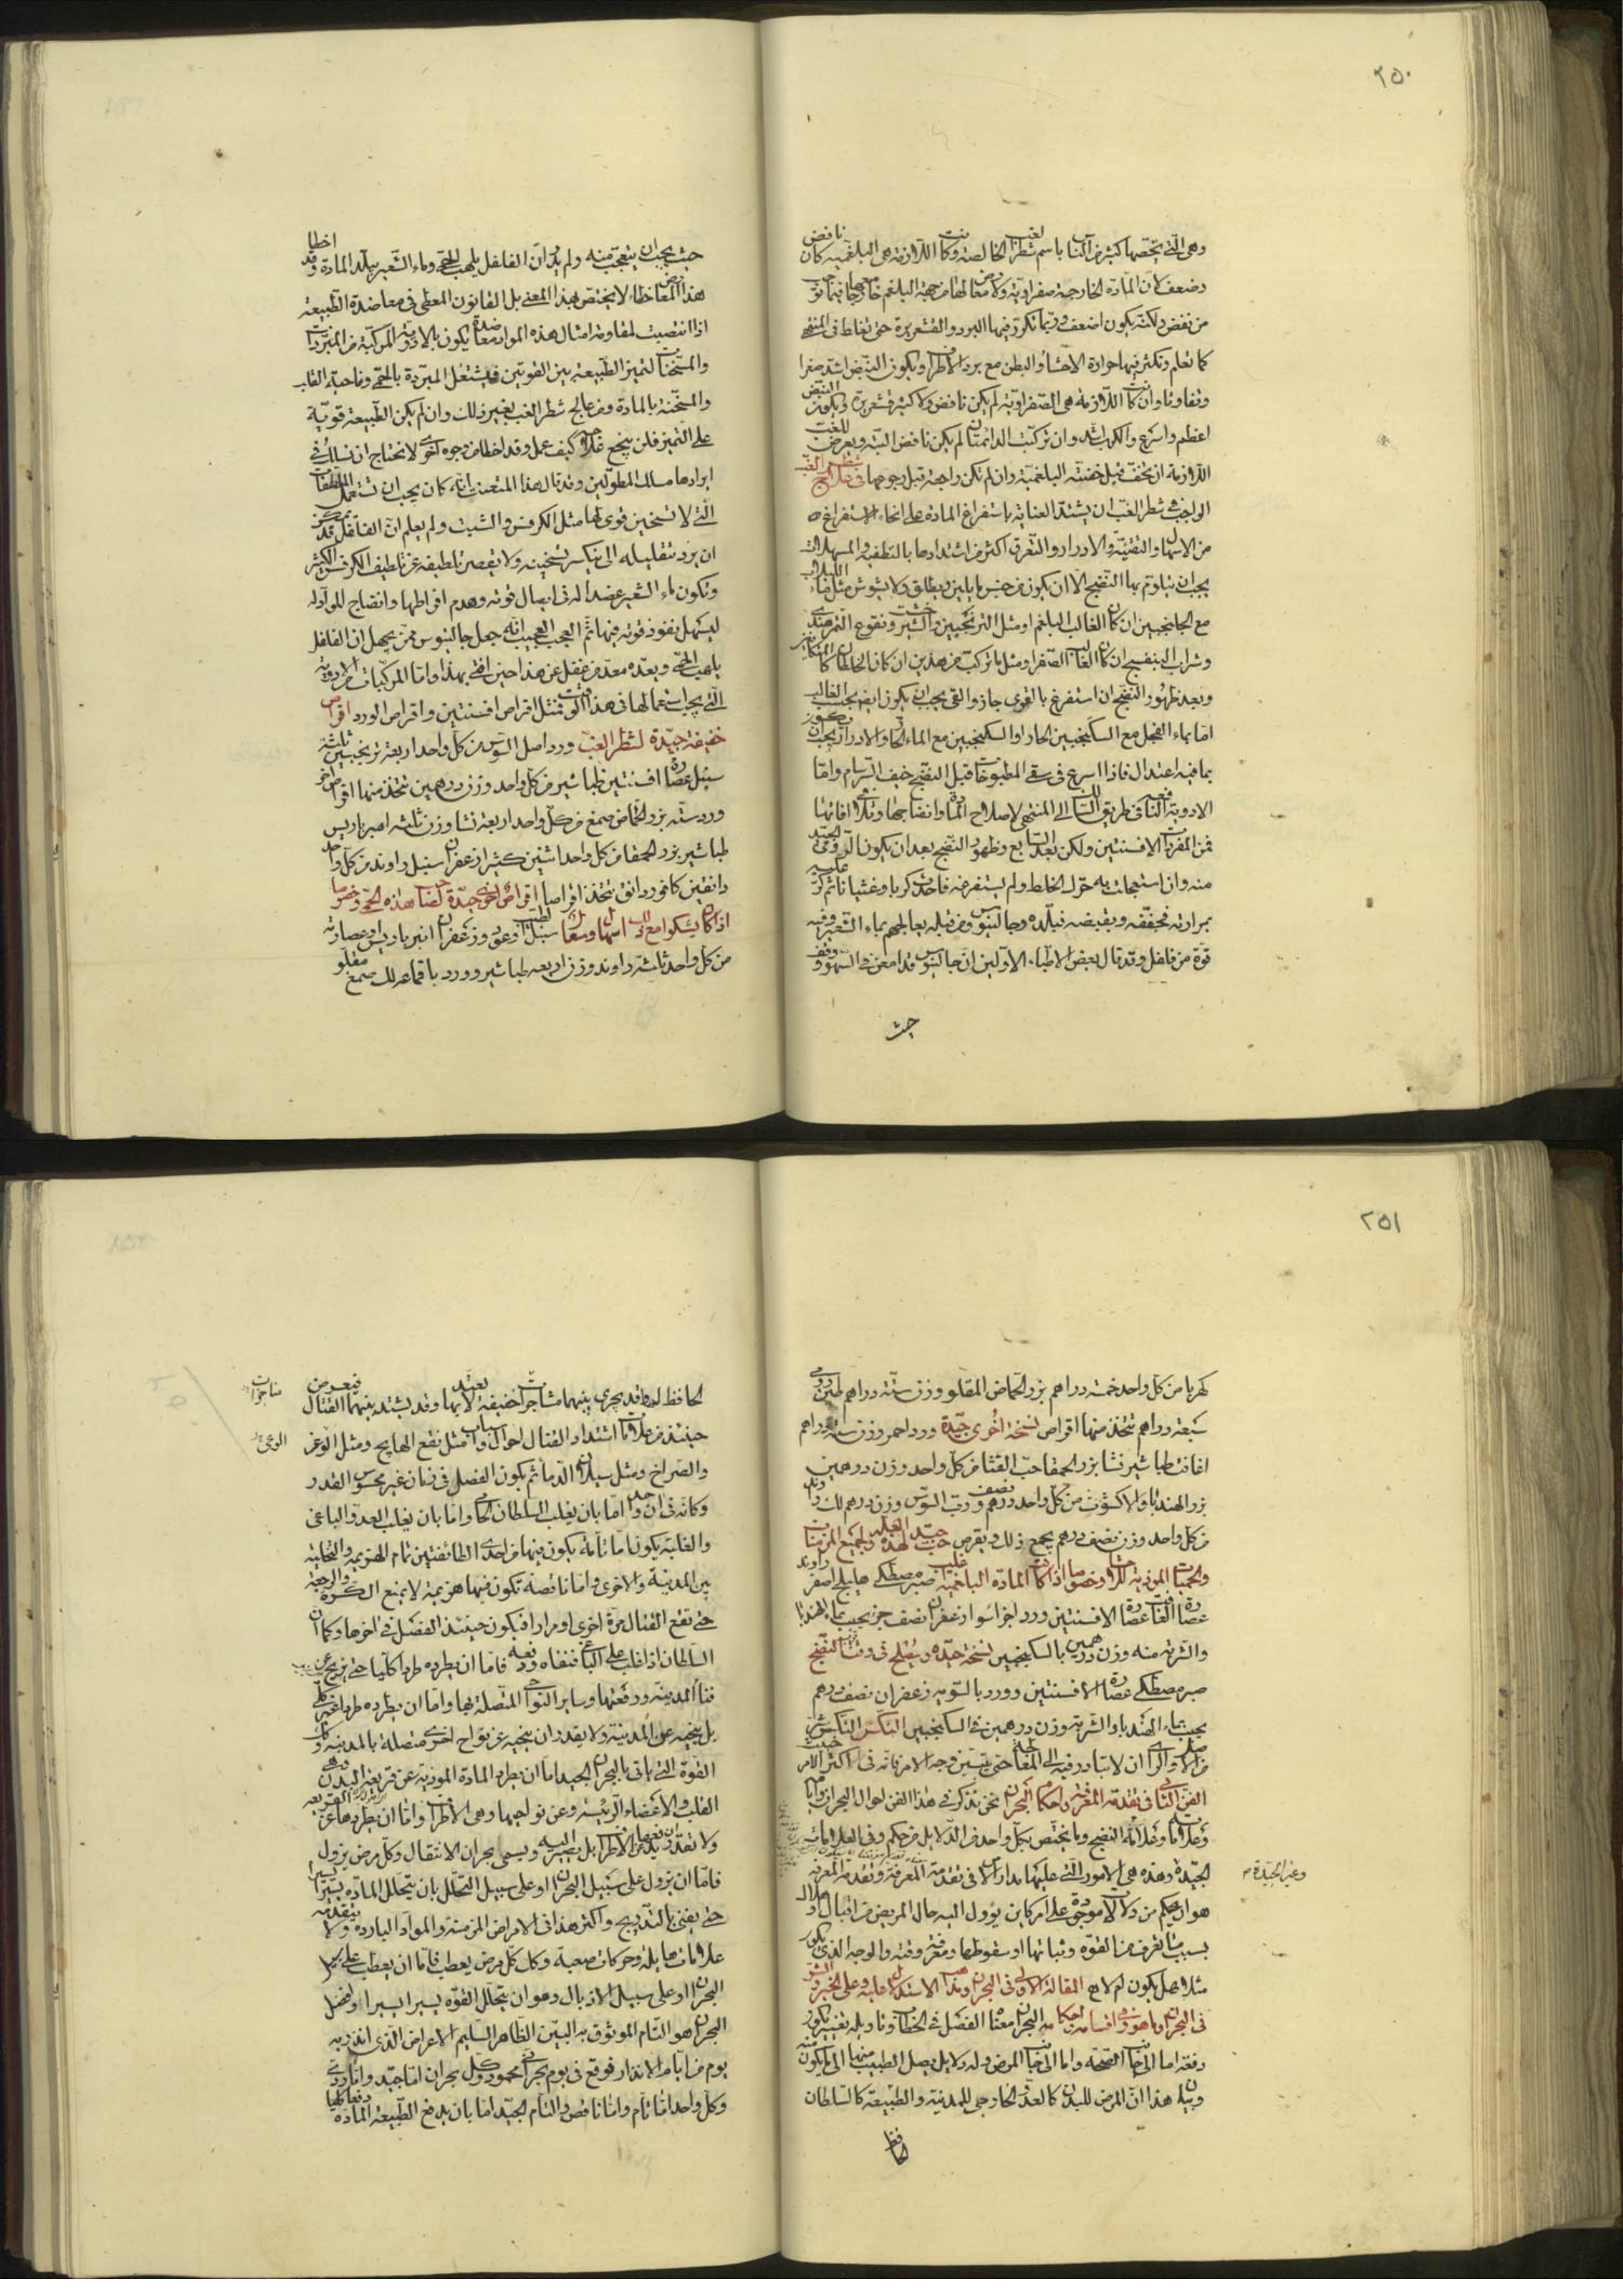 ٢٥٠
وهى التى يخصها كثير من الناس باسم شطر الغب الخالصة وان كانت اللازمة هى البلغمية كان نافض
وضعف لان المادة الخارجة صفراوية ولا معا لها من جهة البلغم
من نفض ولكنه يكون اضعف وربما تكرر فيها البرد والقشعريرة حتى تغالط فى المنتهى
كما تعلم وتكثر فيها حرارة الاحشاء والبطن مع برد الاطراف ويكون النبض اشد صغرا
وتفاوتا وان كانت اللازمة هى الصفراوية لم يكن نافض ولا كثير قشعريرة ويكون النبض
اعظم واسرع والكرب اشد وان تركبت الدائمتان لم يكن نافض البتة ويعرض للغب
اللازمة ان تخف قبل خفة البلغمية وان لم تكن واجبة قبل وجوبها فى علاج شطر الغب
الواجب فى شطر الغب ان يشتد العناية باستفراغ المادة على انحاء الاستفراغ
من الاسهال والتقيئة والادرار والتعرق اكثر من اشتدادها بالتطفية والمسهلات
يجب ان يتلوم بها النضج الا ان يكون من جنس ما يلين ويطلق ولا يشوش مثل ماء اللبلاب
مع الجلنجبين ان كان الغالب البلغم او مثل الترنجبين والشيرخشت ونقوع التمر هندى
وشراب البنفسج ان كان الغالب الصفرا ومثل ما تركب من هذين ان كان الخلطان كالمتكافيين
وبعد ظهور النضج ان استفرغ بالقوى جاز والقى يجب ان يكون ايضا بحسب الغالب
اما بماء الفجل مع السكنجبين الحار او السكنجبين مع الماء الحار والادرار يجب ان يكون
بما فيه اعتدال فاذا اسرع فى سقى المطبوخات قبل النضج خيف السرسام واما
الادوية النافعة فى طريق السلوك الى المنتهى لاصلاح المادة وانضاجها وتلافى افاتها
فمن المفردات الافسنتين ولكن بعد السابع وظهور النضج بعد ان يكون الرومى الجيد
منه وان استعجلت به حرك الخلط ولم يستفرغه فاحدث كربا وغثيانا ثم كر عليه
بمرارته فجففه وبقبضه فبلده وجالينوس ومن قبله يعالجهم بماء الشعير وفيه
قوة من فلفل وقد قال بعض الاطباء الاولين ان جالينوس قد امعن فى السهو ووقف
حيث
حيث يجب ان يتعجب منه ولم يدر ان الفلفل يلهب الحمى وماء الشعير يبلد المادة وقد اخطا
هذا المعارض خطاء لا يختص بهذا المعنى بل القانون المعطى فى معاضدة الطبيعة
اذا انتصبت لمقاومة امثال هذه المواد معاضدة يكون بالادوية المركبة من المبردات
والمسخنات لتميز الطبيعة بين القوتين فيشتغل المبردة بالحمى وناحية القلب
والمسخنة بالمادة ومن عالج شطر الغب بغير ذلك وان لم يكن الطبيعة قوية
على التميز فلن ينجع علاجه كيف عمل وقد اخطا من وجوه اخرى لا نحتاج ان نسلك فى
ايرادها مسلك المطولين وقد قال هذا المتعنت انه كان يجب ان تستعمل الملطفات
التى لا تسخين قوى لها مثل الكرفس والشبت ولم يعلم ان الفلفل قد يمكن
ان يرد بتقليله الى ان ينكسر تسخينه ولا يقصر تلطيفه عن تلطيف الكرفس الكثير
وتكون ماء الشعير عضدا له فى ايصال قوته وهدم افراطها وانضاج المواد له
ليسهل نفوذ قوته فيها ثم العجب العجيب انه جعل جالينوس ممن يجهل ان الفلفل
يلهب الحمى وبعده معد من غفل عن هذا حين افتى بهذا واما المركبات من الادوية
التى يجب استعمالها فى هذا الوقت فمثل اقراص افسنتين واقراص الورد اقراص
خفيفة جيدة لشطر الغب ورد اصل السوس من كل واحد اربعة ترنجبين ثلثة
سنبل عصارة افسنتين طباشير من كل واحد وزن درهمين تتخذ منها اقراص اخرى
ورد ستة بزر الحماض صمغ من كل واحد اربعة نشا وزن ثلثة امبرباريس
طباشير بزر الحمقا من كل واحد اثنين كثيرا زعفران سنبل راوند من كل واحد
دانقين كافور دانق تتخذ اقراصا اقراص اخرى جيدة لهذه الحمى خصوصا
اذا كان يشكوا مع ذلك اسهالا وسعالا سنبل الطيب اوعود وزعفران انبرباريس وعصارته
من كل واحد ثلثة راوند وزن اربعة طباشير وورد باقماعه لك صمغ مقلو
٢٥١
كهربا من كل واحد خمسة دراهم بزر الحماض المقلو وزن ستة دراهم طين رومى
سبعة دراهم تتخذ منها اقراص نسخة اخرى جيدة ورد احمر وزن ستة دراهم
اغافت طباشير نشا بزر الحمقا حب القثا من كل واحد وزن درهمين
بزر الهندبا والاكشوث من كل واحد درهم ونصف ورب السوس وزن درهم لك راوند
من كل واحد وزن نصف درهم يجمع ذلك ويقرص حب جيد لهذه العلة ولجميع المزمنات
والحميات الموذية للاحشا وخصوصا اذا كانت المادة البلغمية غلبت صبر مصطكى هليلج اصفر راوند
عصارة الغافت عصارة الافسنتين ورد اجزا سوا زعفران نصف جزء يحبب بماء الهندبا
والشربة منه وزن درهمين بالسكنجبين نسخة جيدة ويصلح فى وقت النضج
صبر مصطكى عصارة الافسنتين وورد بالسوية زعفران نصف درهم
يحبب بماء الهندبا والشربة وزن درهمين فى السكنجبين النكس النكس شر
من الاصل والراى ان لا يتبادر فيه الى المعالجة حتى يتبين وجه الامر فانه فى اكثر الامر خبيث
الفن الثانى فى تقدمة المعرفة واحكام البحران نحن نذكر فى هذا الفن احوال البحران واياما
وعلاماته وعلامات النضج وما يختص بكل واحد من الدلايل من حكم وفى العلامات
الجيدة وهذه هى الامور التى عليها مدار الامر فى تقدمة المعرفة وتقدمة المعرفة
وغير الجيدة
هو ان يحكم من دلالات موجودة على امر كاين يؤول اليه حال المريض من اقبال او هلاك
بسبب ما تعرف من القوة وثباتها او سقوطها ومعرفة وقته والوجه الذى يكون
مثلا هل يكون ام لا المقالة الاولى فى البحران وهذا الاستدلال عليه وعلى الخير والشر
فى البحران وما هو وفى اقسامه واحكامه البحران معناه الفصل فى الخطاب وتاويله تغيير يكون
دفعة اما الى جانب الصحة واما الى جانب المرض وله دلايل يصل الطبيب منها الى ما يكون منه
وبيان هذا ان المرض للبدن كالعدو الخارجى للمدينة والطبيعة كالسلطان
الحافظ
الحافظ لها وقد يجرى بينهما مشاجرات خفيفة لا يعتد بها وقد يشتد بينهما القتال فيعرض
مناجزات
حينئذ من علامات اشتداد القتال احوال واسباب مثل نقع الهايج ومثل الوغر
الوغى
والصراخ ومثل سيلان الدما ثم يكون الفصل فى زمان غير محسوس القدر
وكانه فى ان واحد اما بان يغلب السلطان الحامى واما بان يغلب العدو الباغى
والغلبة يكون اما تامة يكون فيها من احدى الطائفتين تمام الهزيمة والتخلية
بين المدينة والاخرى واما ناقصة تكون فيها هزيمة لا يمنع الكرة والرجعة
حتى تقع القتال مرة اخرى او مرارا فيكون حينئذ الفصل فى اخرها وكما ان
السلطان اذا غلب على الباغى فنفاه ودفعه فاما ان يطرده طردا كليا حتى يريح عن
فناء المدينة ورقعتها وساير النواحى المتصلة بها واما ان يطرده طردا غير كلى
بل ينحيه عن المدينة ولا يقدر ان ينحيه عن نواح اخرى متصلة بالمدينة وكذلك
القوة التى تاتى بالبحران الجيد اما ان يطرد المادة الموذية عن قريعة البدن وهى
القلب والاعضاء الرئيسة وعن نواحيها وهى الاطراف واما ان يطردها عن القريعة
ولا تقدر ان يدفعها عن الاطراف بل تصير اليه ويسمى بحران الانتقال وكل مرض يزول
فاما ان يزول على سبيل البحران او على سبيل التحلل بان يتحلل المادة يسيرا يسيرا
حتى يفنى بالتدريج واكثر هذا فى الامراض المزمنة والمواد الباردة ولا يتقدمه
علامات هايلة وحركات صعبة وكان كل مرض يعطب فاما ان يعطب على سبيل
البحران او على سبيل الاذبال وهو ان يتحلل القوة يسيرا يسيرا وافضل
البحران هو التام الموثوق به البين الظاهر السليم الاعراض الذى انذر به
يوم من ايام الانذار فوقع فى يوم بحران محمود وكل بحران اما جيد واما ردى
وكل واحد اما تام واما ناقص والتام الجيد اما بان يدفع الطبيعة المادة دفعا كليا